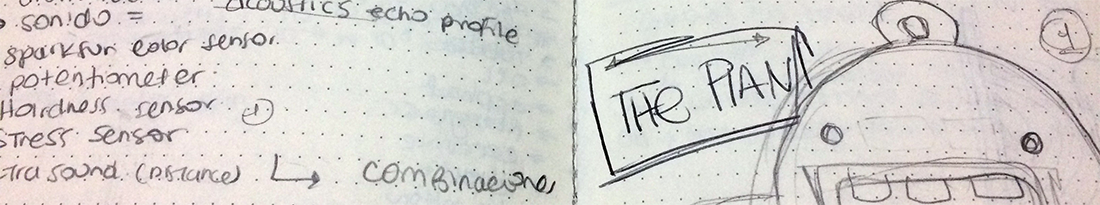 sonido =
acoustics echo profile
sparkfun color sensor
potentiometer
Hardness sensor 1
Stress sensor
trasound (distance) combinaciones
THE PLAN
1